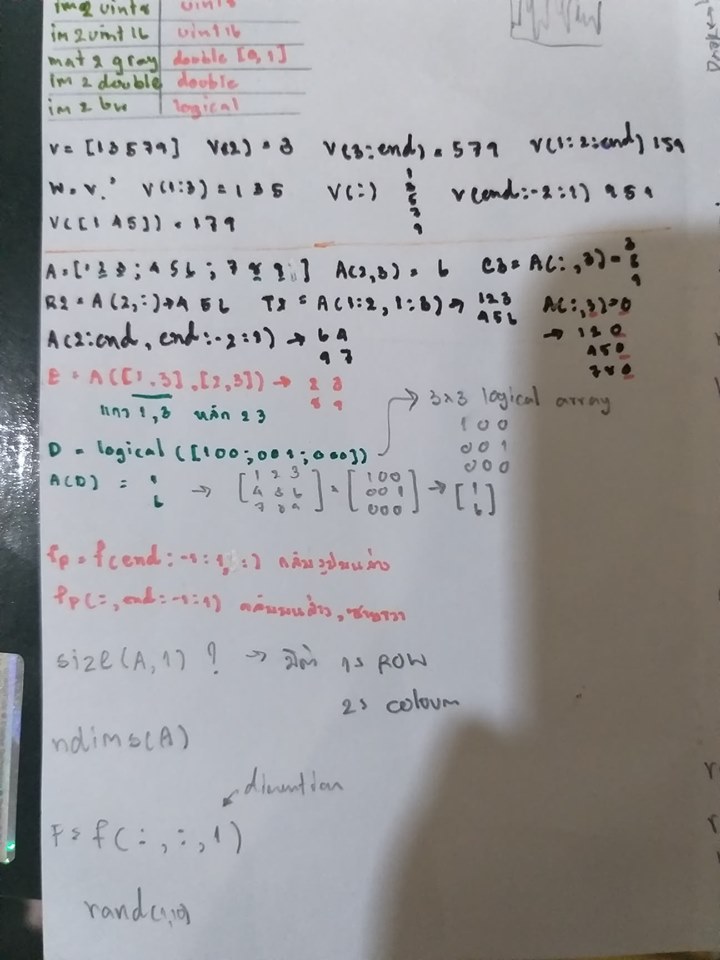 im2uint8 uint8
im2uint16 uint16
mat2gray double [0,1]
im2double double
im2bw logical
V = [13579] V(2) = 3 V(3:end) = 579 V(1:2:end) 159
W = V.' V(1:3) = 135 V(:) 1 3 5 7 9 V(end:-2:1) 951
V([1 4 5]) = 179
A = [1 2 3 ; 4 5 6 ; 7 8 9] A(2,3) = 6 C3 = A(:,3) = 3 6 9
R2 = A(2,:) → 4 5 6 T2 = A(1:2, 1:3) → 123 A(:,3) = 0
456 → 1 2 0
A(2:end, end:-2:1) → 6 4 4 5 0
9 7 7 8 0
E = A([1,3],[2,3]) → 2 3
8 9
แถว 1,3 หลัก 2 3
→ 3×3 logical array
1 0 0
D = logical([100;001;000]) 0 0 1
0 0 0
A(D) = 1 → [1 2 3 [100 → [1
6 4 5 6 001 6]
7 8 9] 000]
fp = f(end:-1:1, :) กลับรูปบนล่าง
fp(:, end:-1:1)
size(A,1) ? → มิติ 1s ROW
2s coloum
ndims(A)
dimention
F = f(:,:,1)